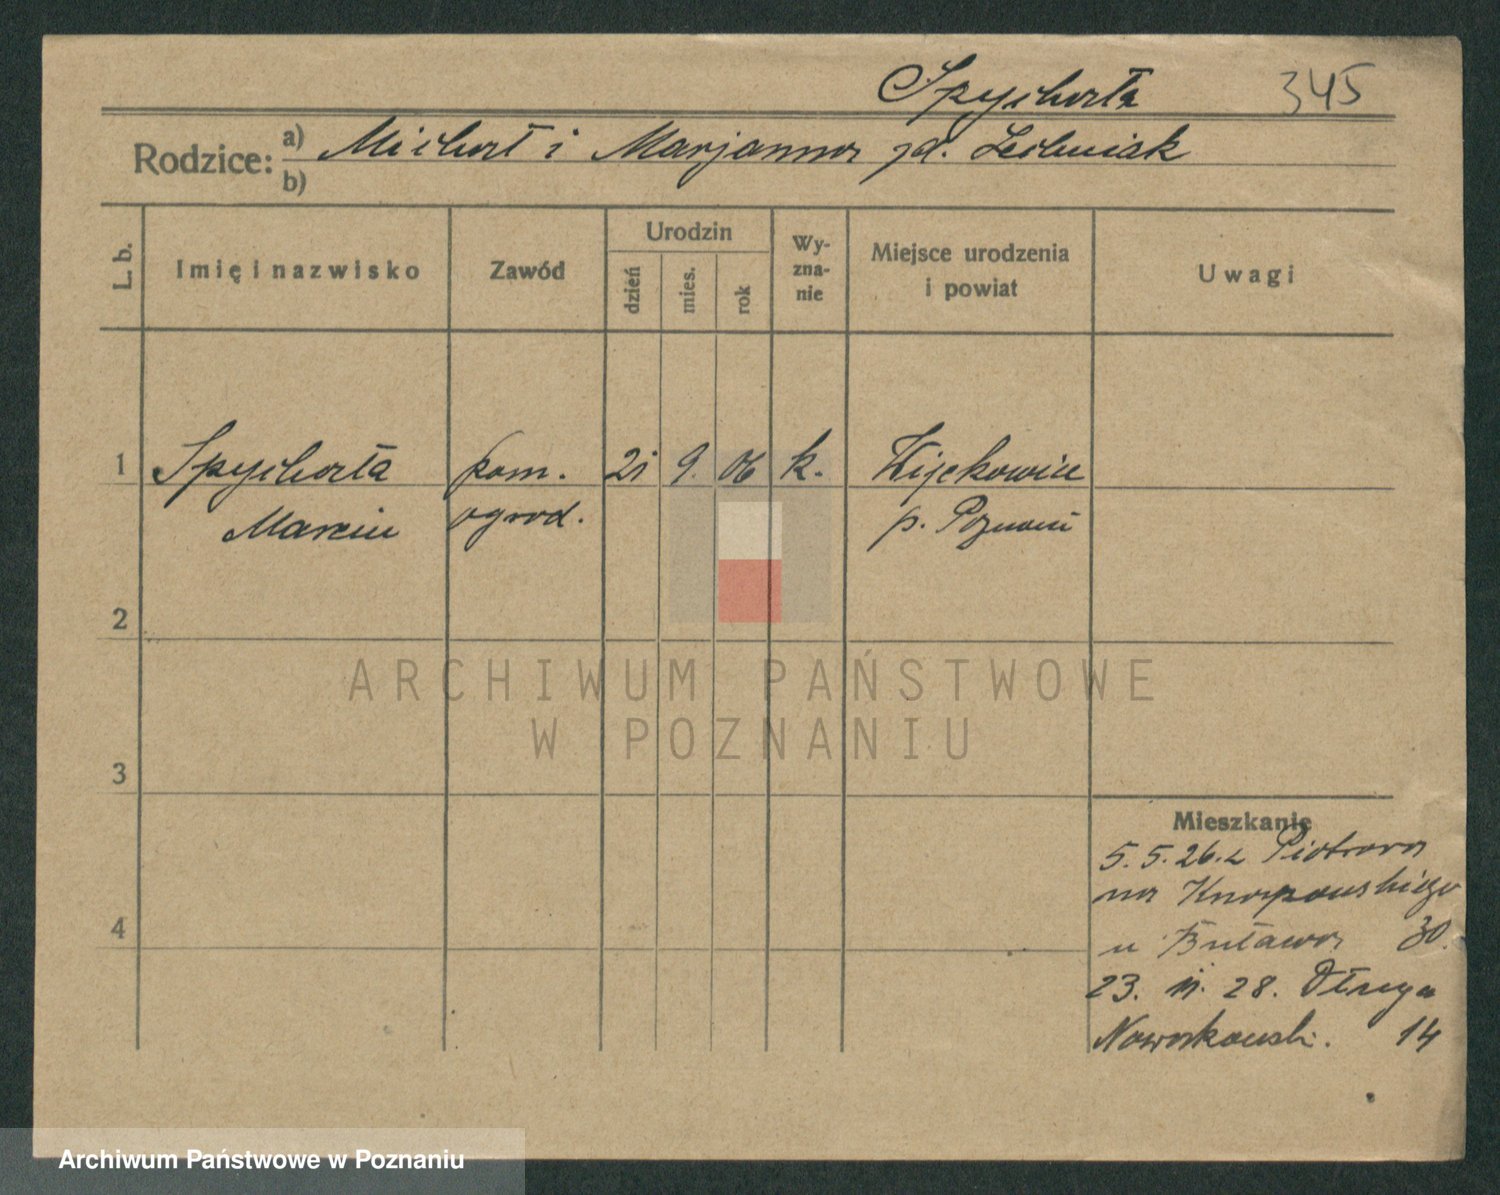 Spychała 345
Rodzice: a) Michał i Marjanna zd. Leśniak
b)
L. b. Imię i nazwisko Zawód Urodzin dzień mies. rok Wyznanie Miejsce urodzenia i powiat Uwagi
1 Spychała pom. 21 9. 06 k. Więckowice
Marcin ogrod. p. Poznań
2
ARCHIWUM PAŃSTWOWE
W POZNANIU
3
Mieszkanie
5.5.26. z Piotrowa
na Knapowskiego
4
u 30.
23. 11. 28. Długa
Nowakowski. 14
Archiwum Państwowe w Poznaniu